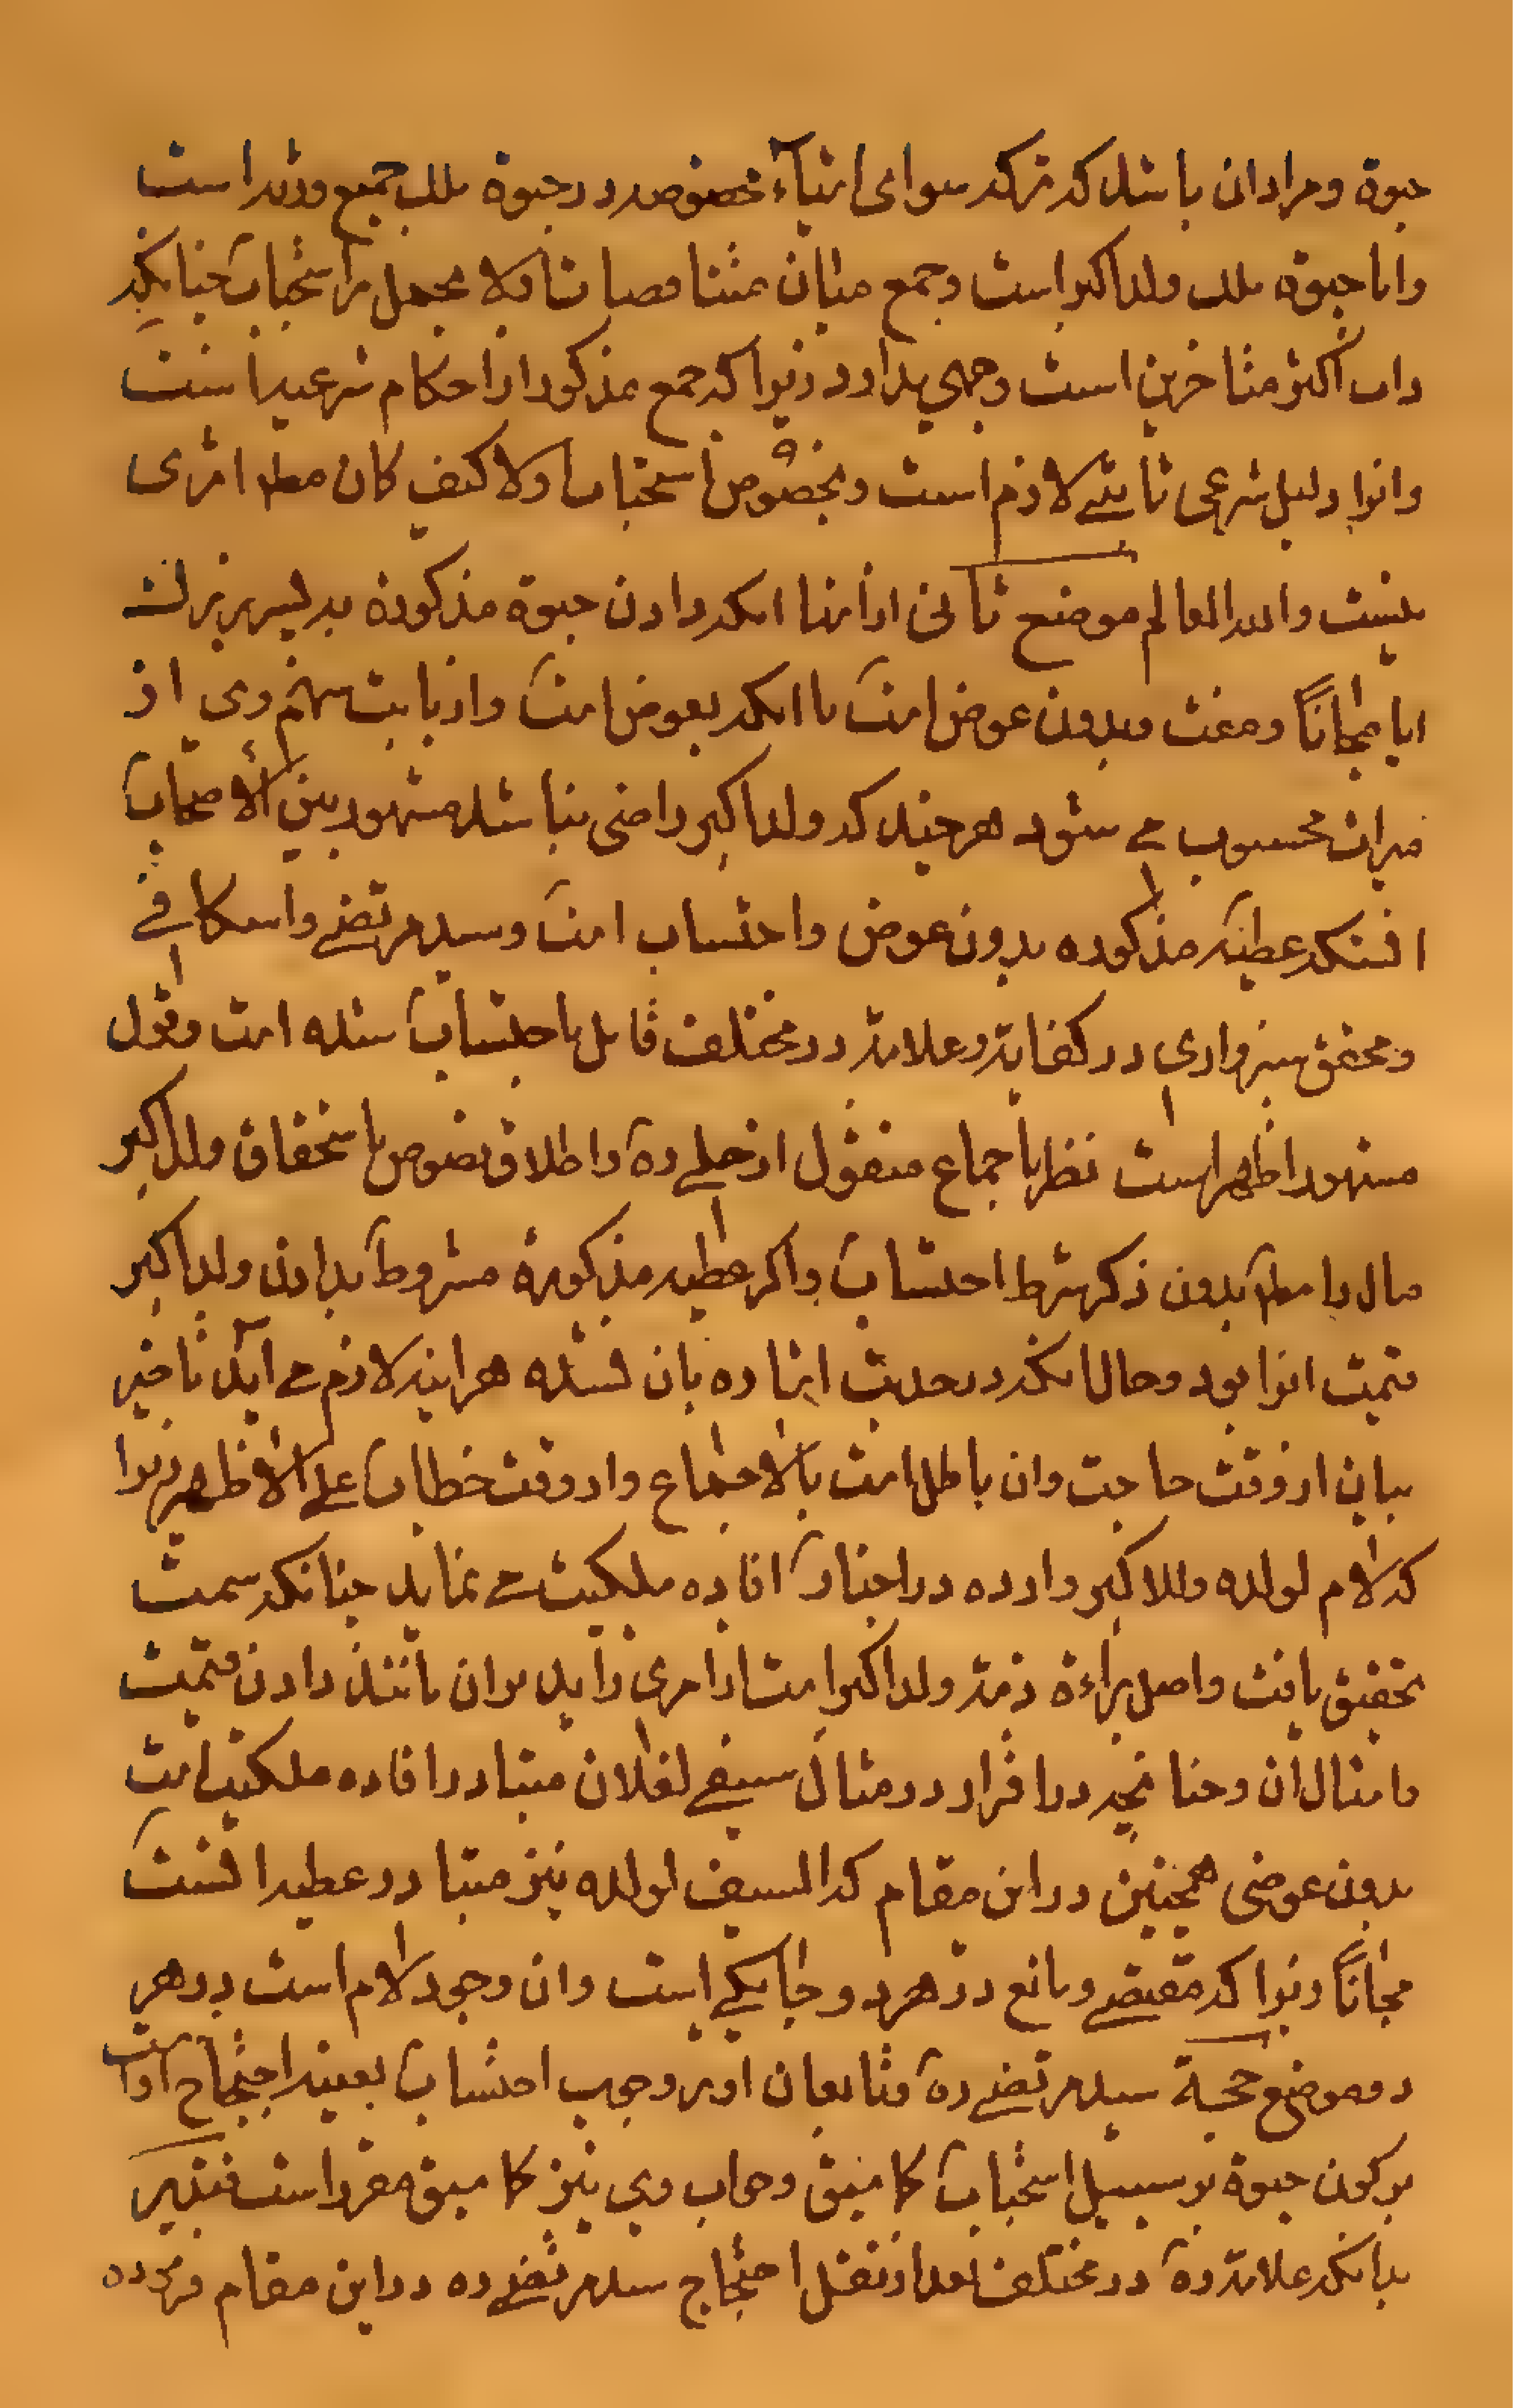 حبوة و مراد ان باشد که ترکه سوای اشیاء مخصوصه در حبوة ملک جمیع ورثه است
و اما حبوة ملک ولد اکبر است و جمع میان متناقصات اولا بحمل بر استحباب چنانکه
داب اکثر متاخرین است وجهی ندارد زیرا که جمع مذکور از احکام شرعیه است
و انرا دلیل شرعی ثابتی لازم است و بخصوص استحباب اولا کیف کان مطلقا امری
نیست والله العالم موضع ثانی از اینها انکه دادن حبوة مذکورة به پسر بزرک
ایا مجاناً و مفت و بدون عوض است یا انکه بعوض است و از بابت سهم وی از
میراث محسوب می شود هر چند که ولد اکبر راضی نباشد مشهور بین الاصحاب
انستکه عطیه مذکوره بدون عوض و احتساب است و سید مرتضی و اسکافی
و محقق سبزواری در کفایة و علامه در مختلف قایل باحتساب شده است و قول
مشهور اظهر است نظر باجماع منقول از حلی ره و اطلاق نصوص باستحقاق ولد اکبر
مال را مطلقا بدون ذکر شرط احتساب و اکر عطیه مذکورة مشروط بدادن ولد اکبر
قیمت انرا بود و حال انکه در حدیث اشاره بان نشده هراینه لازم می آید تاخیر
بیان از وقت حاجت و ان باطل است بالاجماع و از وقت خطاب علی الاظهر زیرا
که لام لولده وللاکبر وارده در اخبار افاده ملکیت می نماید چنانکه سمت
تحقیق یافت و اصل براءة ذمه ولد اکبر است از امری زاید بران مانند دادن قیمت
و امثال ان و چنانچه در اقرار در مثال سیفی لفلان متبادر افاده ملکیت است
بدون عوضی همچنین در این مقام که السیف لولده نیز متبادر عطیه انست
مجاناً زیرا که مقتضی و مانع در هر دو جا یکی است و ان وجود لام است در هر
دو موضع حجة سید مرتضی ره و تابعان او بر وجوب احتساب بعینه احتجاج او است
بر کون حبوة بر سبیل استحباب کما سبق و جواب وی نیز کما سبق مقرر است فتبصر
بدانکه علامه ره در مختلف بعد از نقل احتجاج سید مرتضی ره در این مقام فرموده